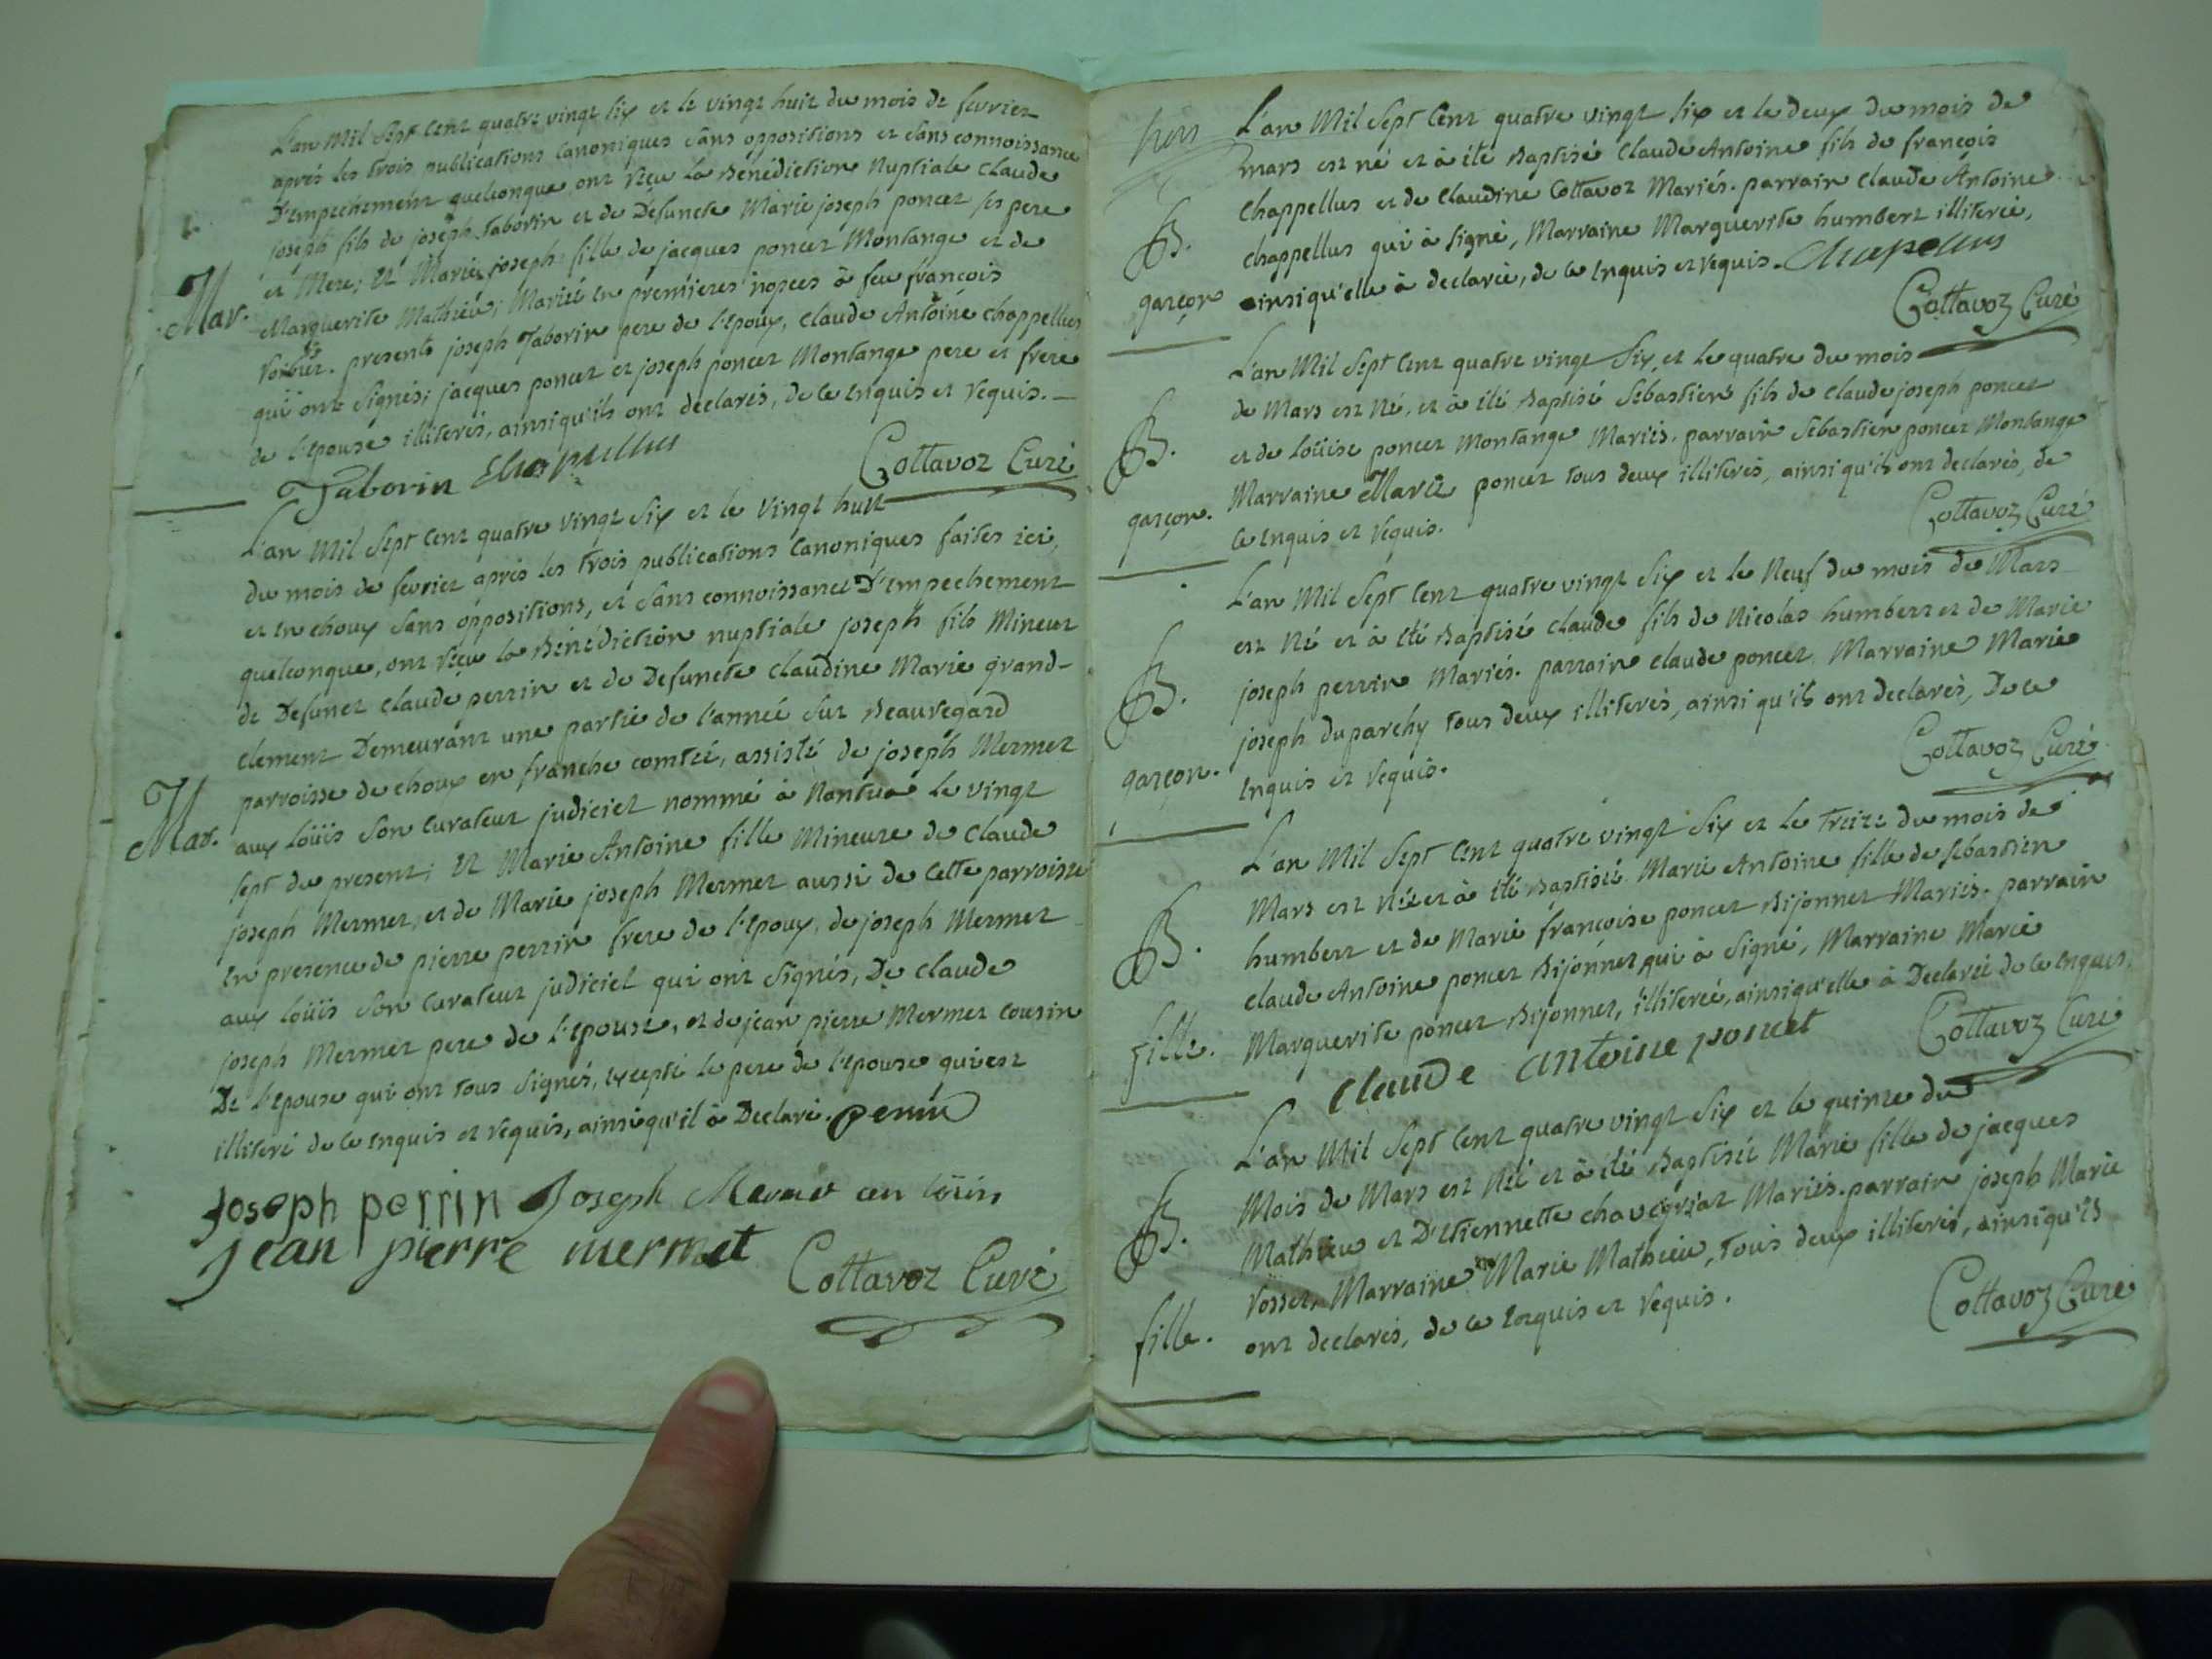 L'an Mil Sept Cent quatre vingt six et le vingt huit du mois de fevrier
après les trois publications canoniques sans oppositions et sans connoissance
D'empechement quelconque, ont reçu la Bénédiction Nuptiale Claude
joseph fils de joseph Taborin et de Defuncte Marie joseph poncet ses pere
et Mere; Et Marie joseph fille de jacques poncet Montange et de
Mar.
Marguerite Mathieu; Mariée en premieres nopces à feu françois
presents joseph Taborin pere de l'Epoux, Claude Antoine Chappellus
qui ont signés; jacques poncet et joseph poncet Montange pere et frere
de l'Epouse illiterés, ainsi qu'ils ont declarés, de ce Enquis et requis.
Taborin Chapellus Cottavoz Curé
L'an Mil Sept Cent quatre vingt six et le vingt huit
du mois de fevrier après les trois publications Canoniques faites ici,
et en choux sans oppositions, et sans connoissance D'Empechement
quelconque, ont reçu la Bénédiction nuptiale joseph fils Mineur
de Defunct Claude perrin et de Defuncte Claudine Marie grand-
clement Demeurant une partie de l'année sur Beauregard
parroisse de choux en franche comtée, assisté de joseph Mermet
Mar.
aux Loüis son Curateur judiciel nommé à Nantua le vingt
sept du present; Et Marie Antoine fille Mineure de Claude
joseph Mermet, et de Marie joseph Mermet aussi de cette parroisse
En presence de pierre perrin frere de l'Epoux, de joseph Mermet
aux Loüis son Curateur judiciel qui ont signés, De Claude
joseph Mermet pere de l'Epouse, et de jean pierre Mermet cousin
De l'Epouse qui ont tous signés, excepté le pere de l'Epouse qui est
illiteré de ce Enquis et requis, ainsi qu'il à Declaré. perrin
Joseph perrin Joseph Mermet au loüis
Jean pierre mermet Cottavoz Curé
L'an Mil Sept Cent quatre vingt six et le deux du mois de
mars est né et à été Baptisé Claude Antoine fils de françois
Chappellus et de Claudine Cottavoz Mariés. parrain Claude Antoine
B.
chappellus qui à signé, Marraine Marguerite humbert illiterée,
garçon
ainsi qu'elle à declarée, de ce Enquis et requis. Chapellus
Cottavoz Curé
L'an Mil Sept Cent quatre vingt Six, et le quatre du mois
de Mars est Né, et à été Baptisé Sébastien fils de Claude joseph poncet
B.
et de Loüise poncet Montange Mariés. parrain Sébastien poncet Montange
Marraine Marie poncet tous deux illiterés, ainsi qu'ils ont declarés, de
garçon.
ce Enquis et requis. Cottavoz Curé
L'an Mil Sept Cent quatre vingt Six et le Neuf du mois de Mars
est Né et à été Baptisé Claude fils de Nicolas humbert et de Marie
B.
joseph perrin Mariés. parrain Claude poncet, Marraine Marie
joseph duparchy tous deux illiterés, ainsi qu'ils ont declarés, De ce
garçon.
Enquis et requis. Cottavoz Curé
L'an Mil Sept Cent quatre vingt Six et le treize du mois de
Mars est Née et à été Baptisée Marie Antoine fille de Sébastien
B.
humbert et de Marie françoise poncet Bijonnet Mariés. parrain
Claude Antoine poncet Bijonnet qui à signé, Marraine Marie
fille.
Marguerite poncet Bijonnet, illiterée, ainsi qu'elle à Declarée de ce Enquis.
Claude antoine poncet Cottavoz Curé
L'an Mil Sept Cent quatre vingt Six et le quinze du
Mois de Mars est Née et à été Baptisée Marie fille de jacques
B.
Mathieu et D'Etiennette Mariés. parrain joseph Marie
rosset, Marraine Marie Mathieu, tous deux illiterés, ainsi qu'ils
fille.
ont declarés, de ce Enquis et requis. Cottavoz Curé